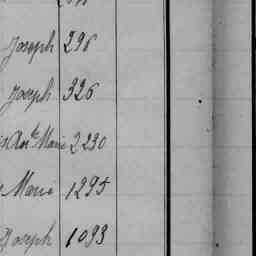 Joseph 296
Joseph 326
Marie 2230
Marie 1295
Joseph 1093